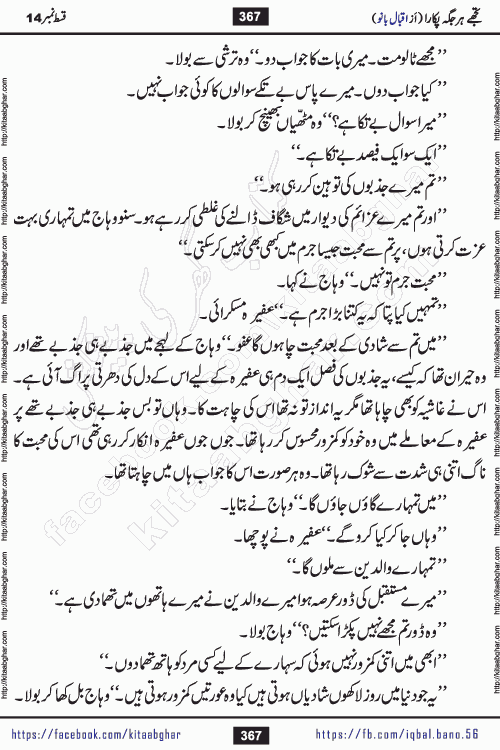 تجھے ہر جگہ پکارا (از اقبال بانو)
367
قسط نمبر 14
’’مجھے ٹالومت۔ میری بات کا جواب دو۔‘‘ وہ ترشی سے بولا۔
’’کیا جواب دوں۔ میرے پاس بے تکے سوالوں کا کوئی جواب نہیں۔
’’میرا سوال بے تکا ہے؟‘‘ وہ مٹھیاں بھینچ کر بولا۔
’’ایک سو ایک فیصد بے تکا ہے۔‘‘
’’تم میرے جذبوں کی توہین کر رہی ہو۔‘‘
’’اور تم میرے عزائم کی دیوار میں شگاف ڈالنے کی غلطی کر رہے ہو۔ سنو وہاج میں تمہاری بہت
عزت کرتی ہوں، پر تم سے محبت جیسا جرم میں کبھی بھی نہیں کر سکتی۔‘‘
’’محبت جرم تو نہیں۔‘‘ وہاج نے کہا۔
’’تمہیں کیا پتا کہ یہ کتنا بڑا جرم ہے۔‘‘ عفیرہ مسکرائی۔
’’میں تم سے شادی کے بعد محبت چاہوں گا عفو۔‘‘ وہاج کے لہجے میں جذبے ہی جذبے تھے اور
وہ حیران تھا کہ کیسے، یہ جذبوں کی فصل ایک دم ہی عفیرہ کے لیے اس کے دل کی دھرتی پر اگ آئی ہے۔
اس نے غاشیہ کو بھی چاہا تھا مگر یہ انداز تو نہ تھا اس کی چاہت کا۔ وہاں تو بس جذبے ہی جذبے تھے پر
عفیرہ کے معاملے میں وہ خود کو کمزور محسوس کر رہا تھا۔ جوں جوں عفیرہ انکار کر رہی تھی اس کی محبت کا
ناگ اتنی ہی شدت سے شوک رہا تھا۔ وہ ہر صورت اس کا جواب ہاں میں چاہتا تھا۔
’’میں تمہارے گاؤں جاؤں گا۔‘‘ وہاج نے بتایا۔
’’وہاں جا کر کیا کرو گے۔‘‘ عفیرہ نے پوچھا۔
’’تمہارے والدین سے ملوں گا۔‘‘
’’میرے مستقبل کی ڈور عرصہ ہوا میرے والدین نے میرے ہاتھوں میں تھما دی ہے۔‘‘
’’وہ ڈور تم مجھے نہیں پکڑا سکتیں؟‘‘ وہاج بولا۔
’’ابھی میں اتنی کمزور نہیں ہوئی کہ سہارے کے لیے کسی مرد کو ہاتھ تھما دوں۔‘‘
’’یہ جو دنیا میں روز لاکھوں شادیاں ہوتی ہیں کیا وہ عورتیں کمزور ہوتی ہیں۔‘‘ وہاج بل کھا کر بولا۔
https://facebook.com/kitaabghar
367
https://fb.com/iqbal.bano.56
http://kitaabghar.com